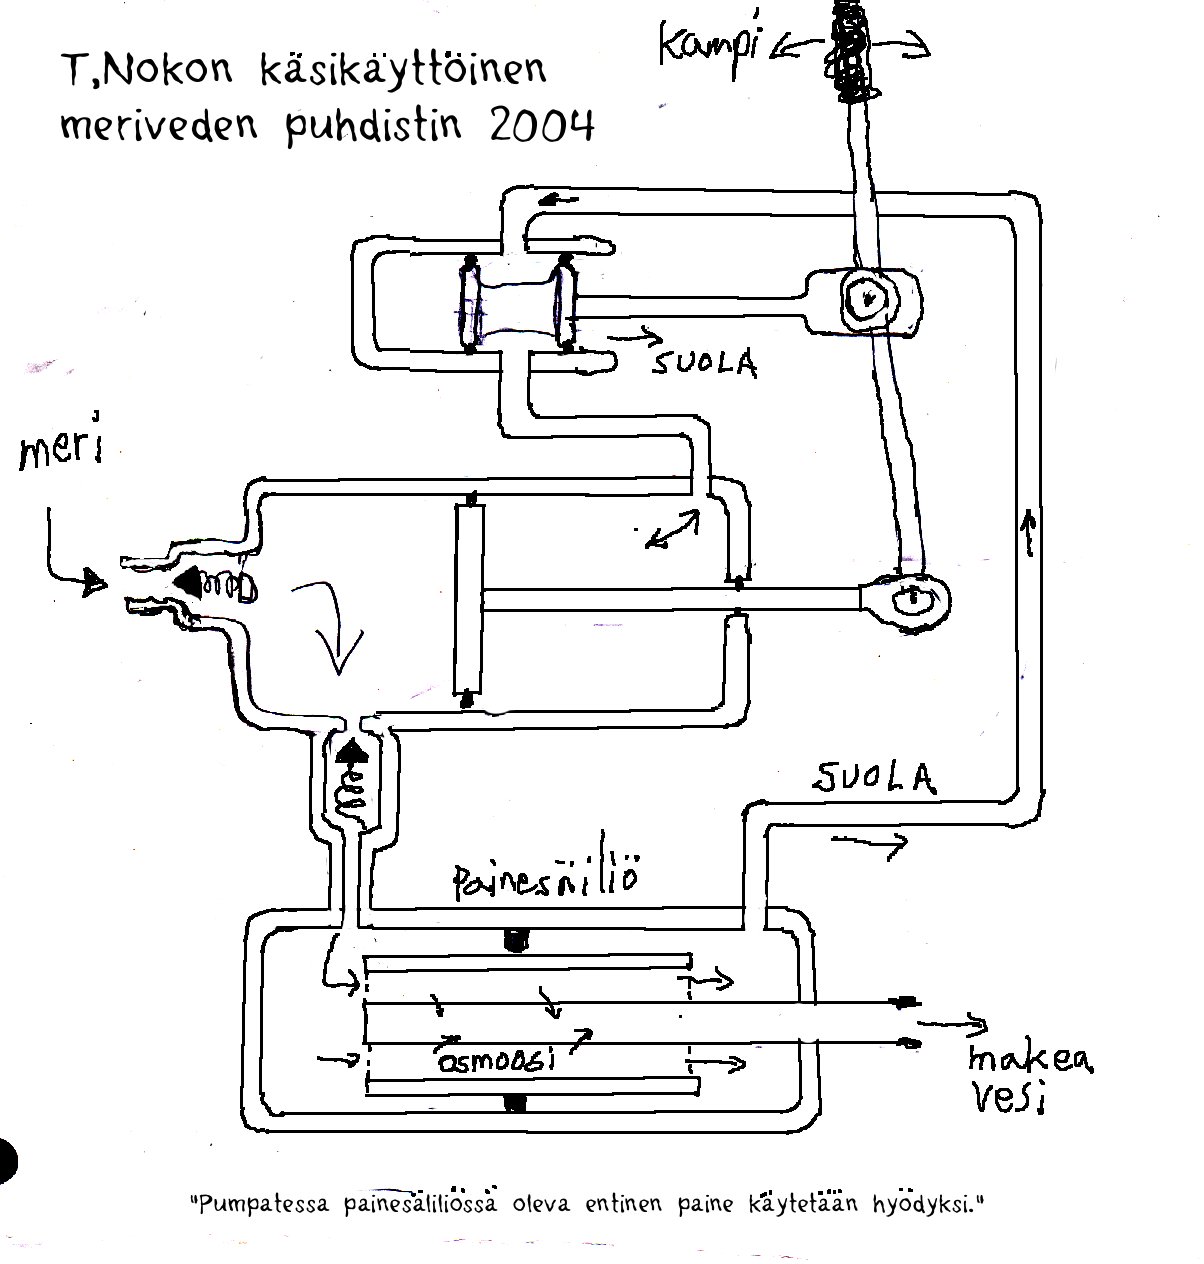 T,Nokon käsikäyttöinen
meriveden puhdistin 2004
kampi
SUOLA
meri
SUOLA
Painesäiliö
osmoosi
makea
vesi
"Pumpatessa painesäliliössä oleva entinen paine käytetään hyödyksi."